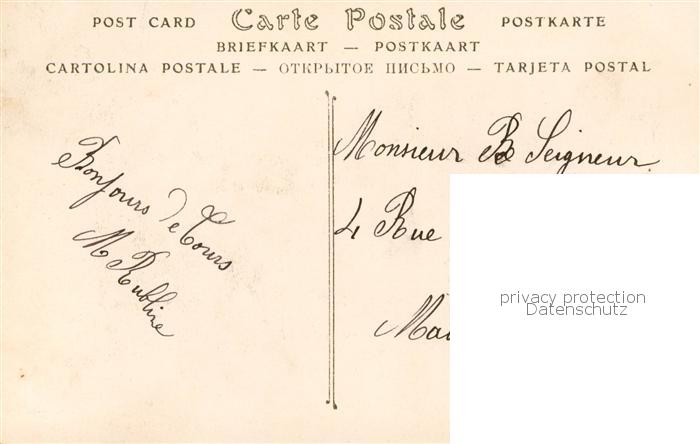 POST CARD Carte Postale POSTKARTE
BRIEFKAART — POSTKAART
CARTOLINA POSTALE — ОТКРЫТОЕ ПИСЬМО — TARJETA POSTAL
Bonjours de Tours
M Rubline
Monsieur R Seigneur
4 Rue
Mai
privacy protection
Datenschutz